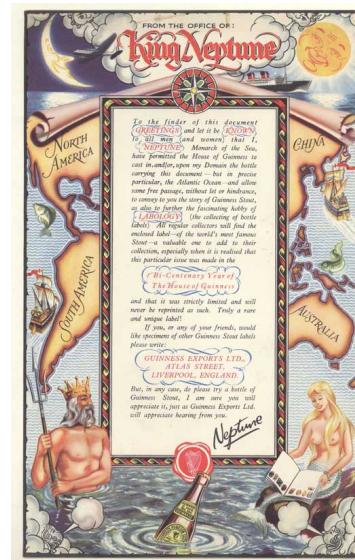 FROM THE OFFICE OF:
King Neptune
To the finder of this document
GREETINGS and let it be KNOWN
to all men (and women) that I,
NEPTUNE Monarch of the Sea,
have permitted the House of Guinness to
cast in, and/or, upon my Domain the bottle
carrying this document—but in precise
particular, the Atlantic Ocean—and allow
same free passage, without let or hindrance,
to convey to you the story of Guinness Stout,
as also to further the fascinating hobby of
LABOLOGY (the collecting of bottle
labels) All regular collectors will find the
enclosed label—of the world's most famous
Stout—a valuable one to add to their
collection, especially when it is realised that
this particular issue was made in the
Bi-Centenary Year of
The House of Guinness
and that it was strictly limited and will
never be reprinted as such. Truly a rare
and unique label!
If you, or any of your friends, would
like specimens of other Guinness Stout labels
please write:
GUINNESS EXPORTS LTD.,
ATLAS STREET,
LIVERPOOL, ENGLAND.
But, in any case, do please try a bottle of
Guinness Stout, I am sure you will
appreciate it, just as Guinness Exports Ltd.
will appreciate hearing from you.
Neptune
NORTH
AMERICA
SOUTH AMERICA
CHINA
AUSTRALIA